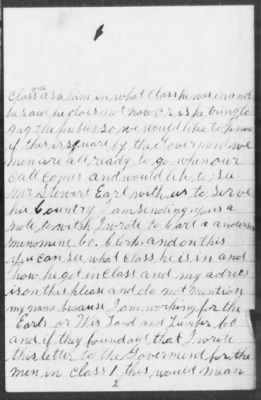 class ask him in what class he was in and
he said he does not now or is he trying to
gag the public so we would like to know
if this is square by the Government we
men are all ready to go when our
call comes and would like to see
Mr Stewart Earl with us to serve
his Country I am sending you a
note to wish I wrote to Carl a anderson
menomenie Co. Clerk and on this
you can see what class he is in and
how he got in class and my adress
is on this pleas and do not mention
my name because I am working for the
Earls or Wis Land and Lumber Co
and if they found out that I wrote
this letter to the Goverment for the
men in class 1 this would mean
2